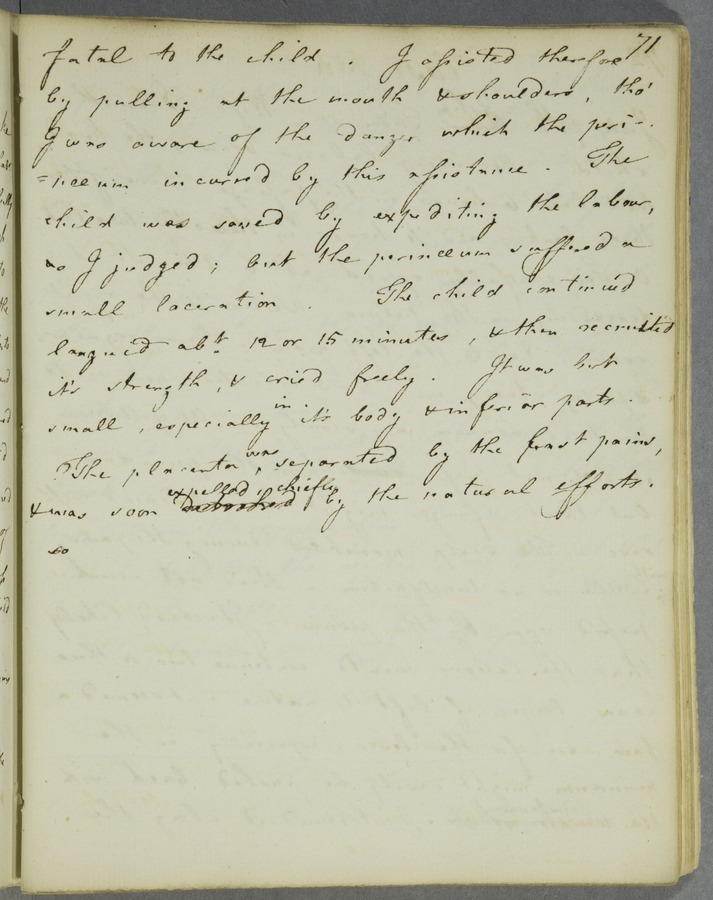 71
fatal to the child. I assisted therefore
by pulling at the mouth & shoulders, tho'
I was aware of the danger which the peri-
=neum incurred by this assistance. The
child was saved by expediting the labour,
as I judged; but the perineum suffered a
small laceration. The child continued
languid abt. 12 or 15 minutes, & then recruited
it's strength, & cried freely. It was but
small, especially in it's body & inferior parts.
The placenta was separated by the first pains,
expelled chiefly
& was soon by the natural efforts.
so